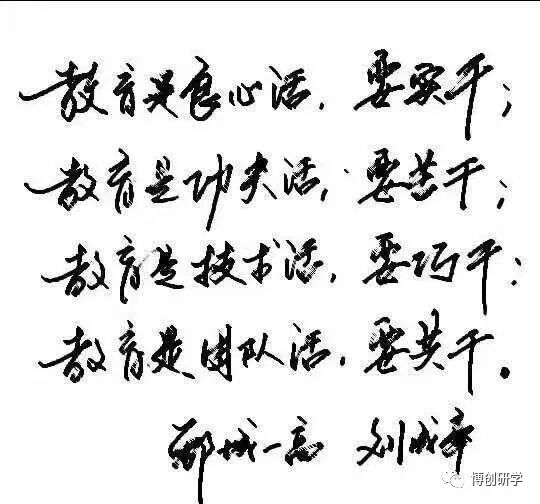 教育是良心活，要实干；
教育是功夫活，要苦干；
教育是技术活，要巧干；
教育是团队活，要共干。
郸城一高 刘成章
博创研学